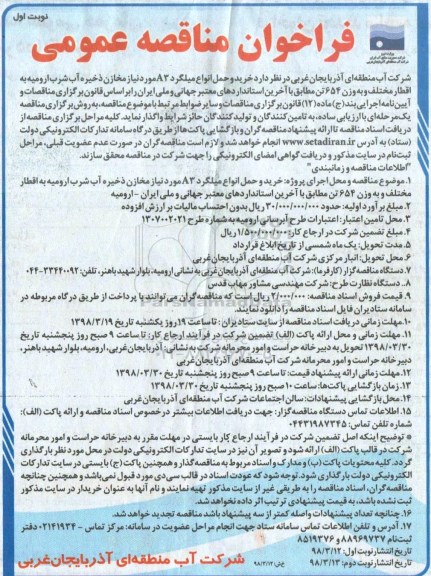 نوبت اول
فراخوان مناقصه عمومی
شرکت آب منطقه‌ای آذربایجان‌غربی در نظر دارد خرید و حمل انواع میلگرد A۳ مورد نیاز مخازن ذخیره آب شرب ارومیه به
اقطار مختلف و به وزن ۶۵۴ تن مطابق با آخرین استانداردهای معتبر جهانی و ملی ایران را براساس قانون برگزاری مناقصات و
آیین‌نامه اجرایی بند (ج) ماده (۱۲) قانون برگزاری مناقصات و سایر ضوابط مرتبط با موضوع مناقصه، به روش برگزاری مناقصه
یک مرحله‌ای با ارزیابی ساده، به تامین کنندگان و تولید کنندگان حائز شرایط واگذار نماید. کلیه مراحل برگزاری مناقصه از
دریافت اسناد مناقصه تا ارائه پیشنهاد مناقصه‌گران و بازگشایی پاکت‌ها از طریق درگاه سامانه تدارکات الکترونیکی دولت
(ستاد) به آدرس www.setadiran.ir انجام خواهد شد و لازم است مناقصه‌گران در صورت عدم عضویت قبلی، مراحل
ثبت‌نام در سایت مذکور و دریافت گواهی امضای الکترونیکی را جهت شرکت در مناقصه محقق سازند.
"اطلاعات مناقصه و زمانبندی"
۱. موضوع مناقصه و محل اجرای پروژه: خرید و حمل انواع میلگرد A۳ مورد نیاز مخازن ذخیره آب شرب ارومیه به اقطار
مختلف و به وزن ۶۵۴ تن مطابق با آخرین استانداردهای معتبر جهانی و ملی ایران - ارومیه
۲. مبلغ برآورد اولیه: حدود ۳۰/۰۰۰/۰۰۰/۰۰۰ ریال بدون احتساب مالیات بر ارزش افزوده
۳. محل تامین اعتبار: اعتبارات طرح آبرسانی ارومیه به شماره طرح ۱۳۰۷۰۰۲۰۲۱
۴. مبلغ تضمین شرکت در ارجاع کار: ۱/۵۰۰/۰۰۰/۰۰۰ ریال
۵. مدت تحویل: یک ماه شمسی از تاریخ ابلاغ قرارداد
۶. محل تحویل: انبار مرکزی شرکت آب منطقه‌ای آذربایجان‌غربی
۷. دستگاه مناقصه‌گزار (کارفرما): شرکت آب منطقه‌ای آذربایجان‌غربی به نشانی ارومیه، بلوار شهید باهنر، تلفن: ۳۳۴۴۰۰۹۲-۰۴۴
۸. دستگاه نظارت طرح: شرکت مهندسی مشاور مهاب قدس
۹. قیمت فروش اسناد مناقصه: ۲/۰۰۰/۰۰۰ ریال است که مناقصه‌گران می‌توانند با پرداخت از طریق درگاه مربوطه در
سامانه ستاد ایران فایل اسناد مناقصه را دانلود نمایند.
۱۰. مهلت زمانی دریافت اسناد مناقصه از سایت ستاد ایران: تا ساعت ۱۹ روز یکشنبه تاریخ ۱۳۹۸/۳/۱۹
۱۱. مهلت زمانی و محل ارائه پاکت (الف) تضمین شرکت در فرآیند ارجاع کار: تا ساعت ۹ صبح روز پنجشنبه تاریخ
۱۳۹۸/۰۳/۳۰ تحویل به دبیرخانه حراست و امور محرمانه شرکت به نشانی: آذربایجان‌غربی، ارومیه، بلوار شهید باهنر،
دبیرخانه حراست و امور محرمانه شرکت آب منطقه‌ای آذربایجان غربی
۱۲. مهلت زمانی ارائه پیشنهاد قیمت: تا ساعت ۹ صبح روز پنجشنبه تاریخ ۱۳۹۸/۰۳/۳۰
۱۳. زمان بازگشایی پاکت‌ها: ساعت ۱۰ صبح روز پنجشنبه تاریخ ۱۳۹۸/۰۳/۳۰
۱۴. محل بازگشایی پیشنهادات: سالن اجتماعات شرکت آب منطقه‌ای آذربایجان‌غربی
۱۵. اطلاعات تماس دستگاه مناقصه‌گزار: جهت دریافت اطلاعات بیشتر در خصوص اسناد مناقصه و ارائه پاکت (الف):
شماره تلفن تماس: ۰۴۴۳۱۹۸۷۳۴۵
* توضیح اینکه اصل تضمین شرکت در فرآیند ارجاع کار بایستی در مهلت مقرر به دبیرخانه حراست و امور محرمانه
شرکت در قالب پاکت (الف) ارائه شود و تصویر آن نیز در سایت تدارکات الکترونیکی دولت در محل مورد نظر بارگذاری
گردد. کلیه محتویات پاکت (ب) و مدارک و اسناد مربوط به مناقصه‌گذار و همچنین پاکت (ج) بایستی در سایت تدارکات
الکترونیکی دولت بارگذاری شود. توجه شود که عودت اسناد در قالب سی‌دی مورد قبول نمی‌باشد و همچنین چنانچه
مناقصه‌گران، اسناد مناقصه را به طریقی غیر از سایت مذکور تهیه نمایند و نام آنها به عنوان خریدار در سایت مذکور
ثبت نشده باشد، به قیمت پیشنهادی ترتیب اثر داده نخواهد شد.
۱۶. چنانچه تعداد پیشنهادات واصله کمتر از سه پیشنهاد باشد مناقصه تجدید خواهد شد.
۱۷. آدرس و تلفن اطلاعات تماس سامانه ستاد جهت انجام مراحل عضویت در سامانه: مرکز تماس - ۰۲۱۴۱۹۳۴ دفتر
ثبت‌نام ۸۸۹۶۹۷۳۷ و ۸۵۱۹۳۷۶۸
تاریخ انتشار نوبت اول: ۹۸/۳/۱۲
تاریخ انتشار نوبت دوم: ۹۸/۳/۱۳
۹۸/۳/۱۲
شرکت آب منطقه‌ای آذربایجان‌غربی